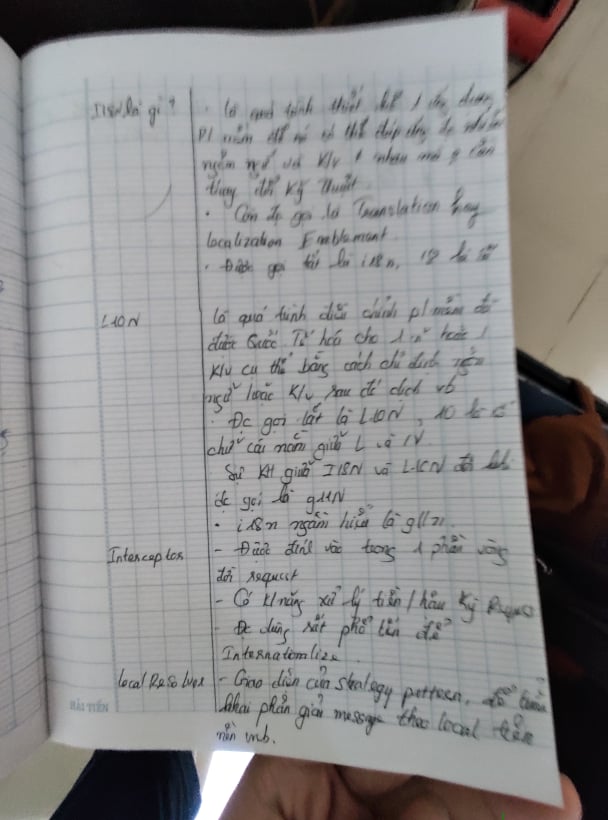 I18N là gì?
• là quá trình thiết kế 1 ứng dụng
p/mềm để nó có thể đáp ứng đc nhiều
ngôn ngữ và K/v # nhau mà o cần
thay đổi Kỹ Thuật.
• Còn đc gọi là Translation hay
localization Enablement.
• Được gọi tắt là i18n, 18 là số
L10N
là quá trình điều chỉnh p/mềm đã
được Quốc Tế hoá cho 1 n² hoặc 1
K/v cụ thể bằng cách chỉ định ngôn
ngữ hoặc K/v sau đó dịch vb
• Đc gọi tắt là L10N, 10 là số
chữ cái nằm giữa L và N
• Sự KH giữa I18N và L10N đôi khi
đc gọi là g11N
• i18n ngầm hiểu là g11n.
Interceptor
- Được đính vào trong 1 phần vòng
đời request
- Có K/năng xử lý tiền / hậu Kỳ Reques
- Đc dùng rất phổ biến để
Internationalize.
Local Resolver
- Giao diện của strategy pattern, để triển
khai phân giải message theo local trên
nền
BÃI TIẾN